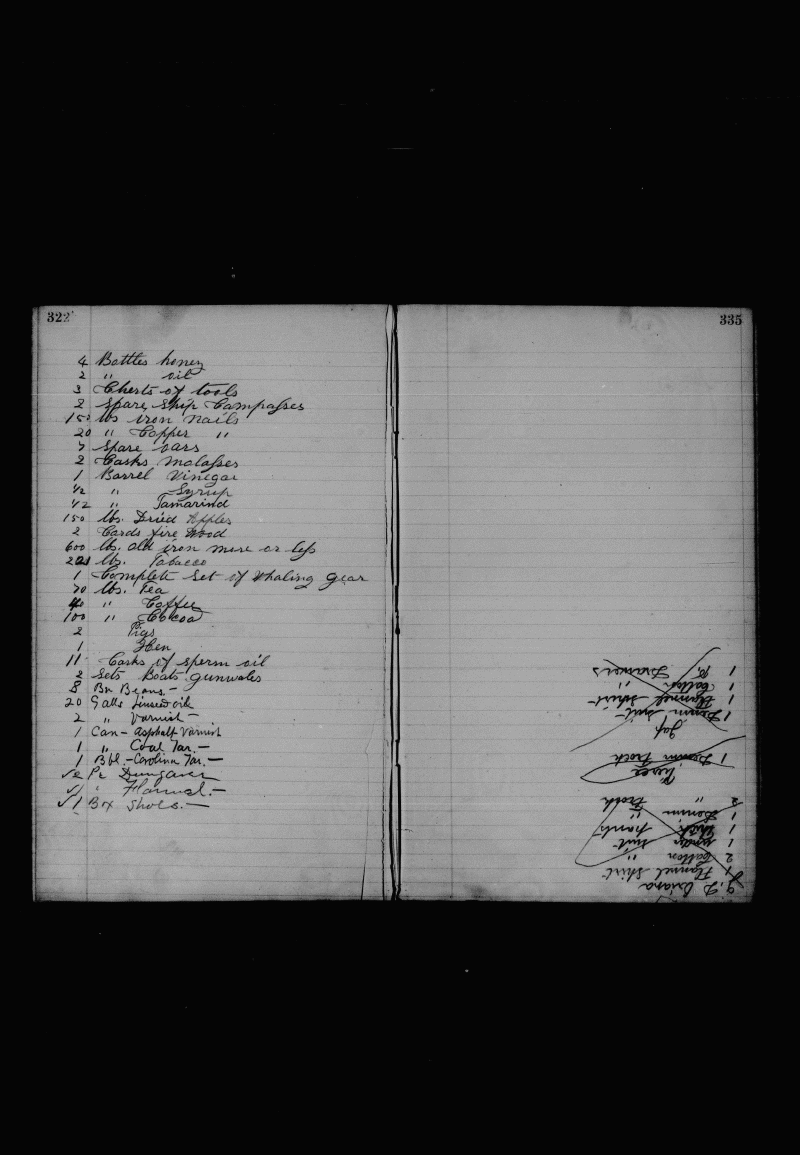 322
4 Bottles honey
2 " oil
3 Chests of tools
2 Spare Ship Compasses
150 lbs iron nails
20 " Copper "
7 Spare oars
2 Casks Molasses
1 Barrel Vinegar
1/2 " Syrup
1/2 " Tamarind
150 lbs. Dried Apples
2 Cords fire Wood
600 lbs. old iron more or less
221 lbs. Tobacco
1 Complete Set of Whaling gear
70 lbs. Tea
40 " Coffee
100 " Cocoa
2 Pigs
1 Hen
11 Casks of sperm oil
2 Sets Boats gunwales
8 Bx Beans -
20 Galls linseed oil
2 " Varnish -
1 Can - asphalt Varnish
1 " Coal Tar. -
1 Bbl. - Carolina Tar. -
Pc Dungaree
" Flannel. -
1 Box Shoes. -
335
1 Flannel Shirt
2 Cotton "
1 under suit
1 thick pants
1 Denim "
2 " Frock
1 Denim Frock
Jap
1 Denim suit
1 Flannel Shirt
1 Cotton "
1 Pr. Drawers